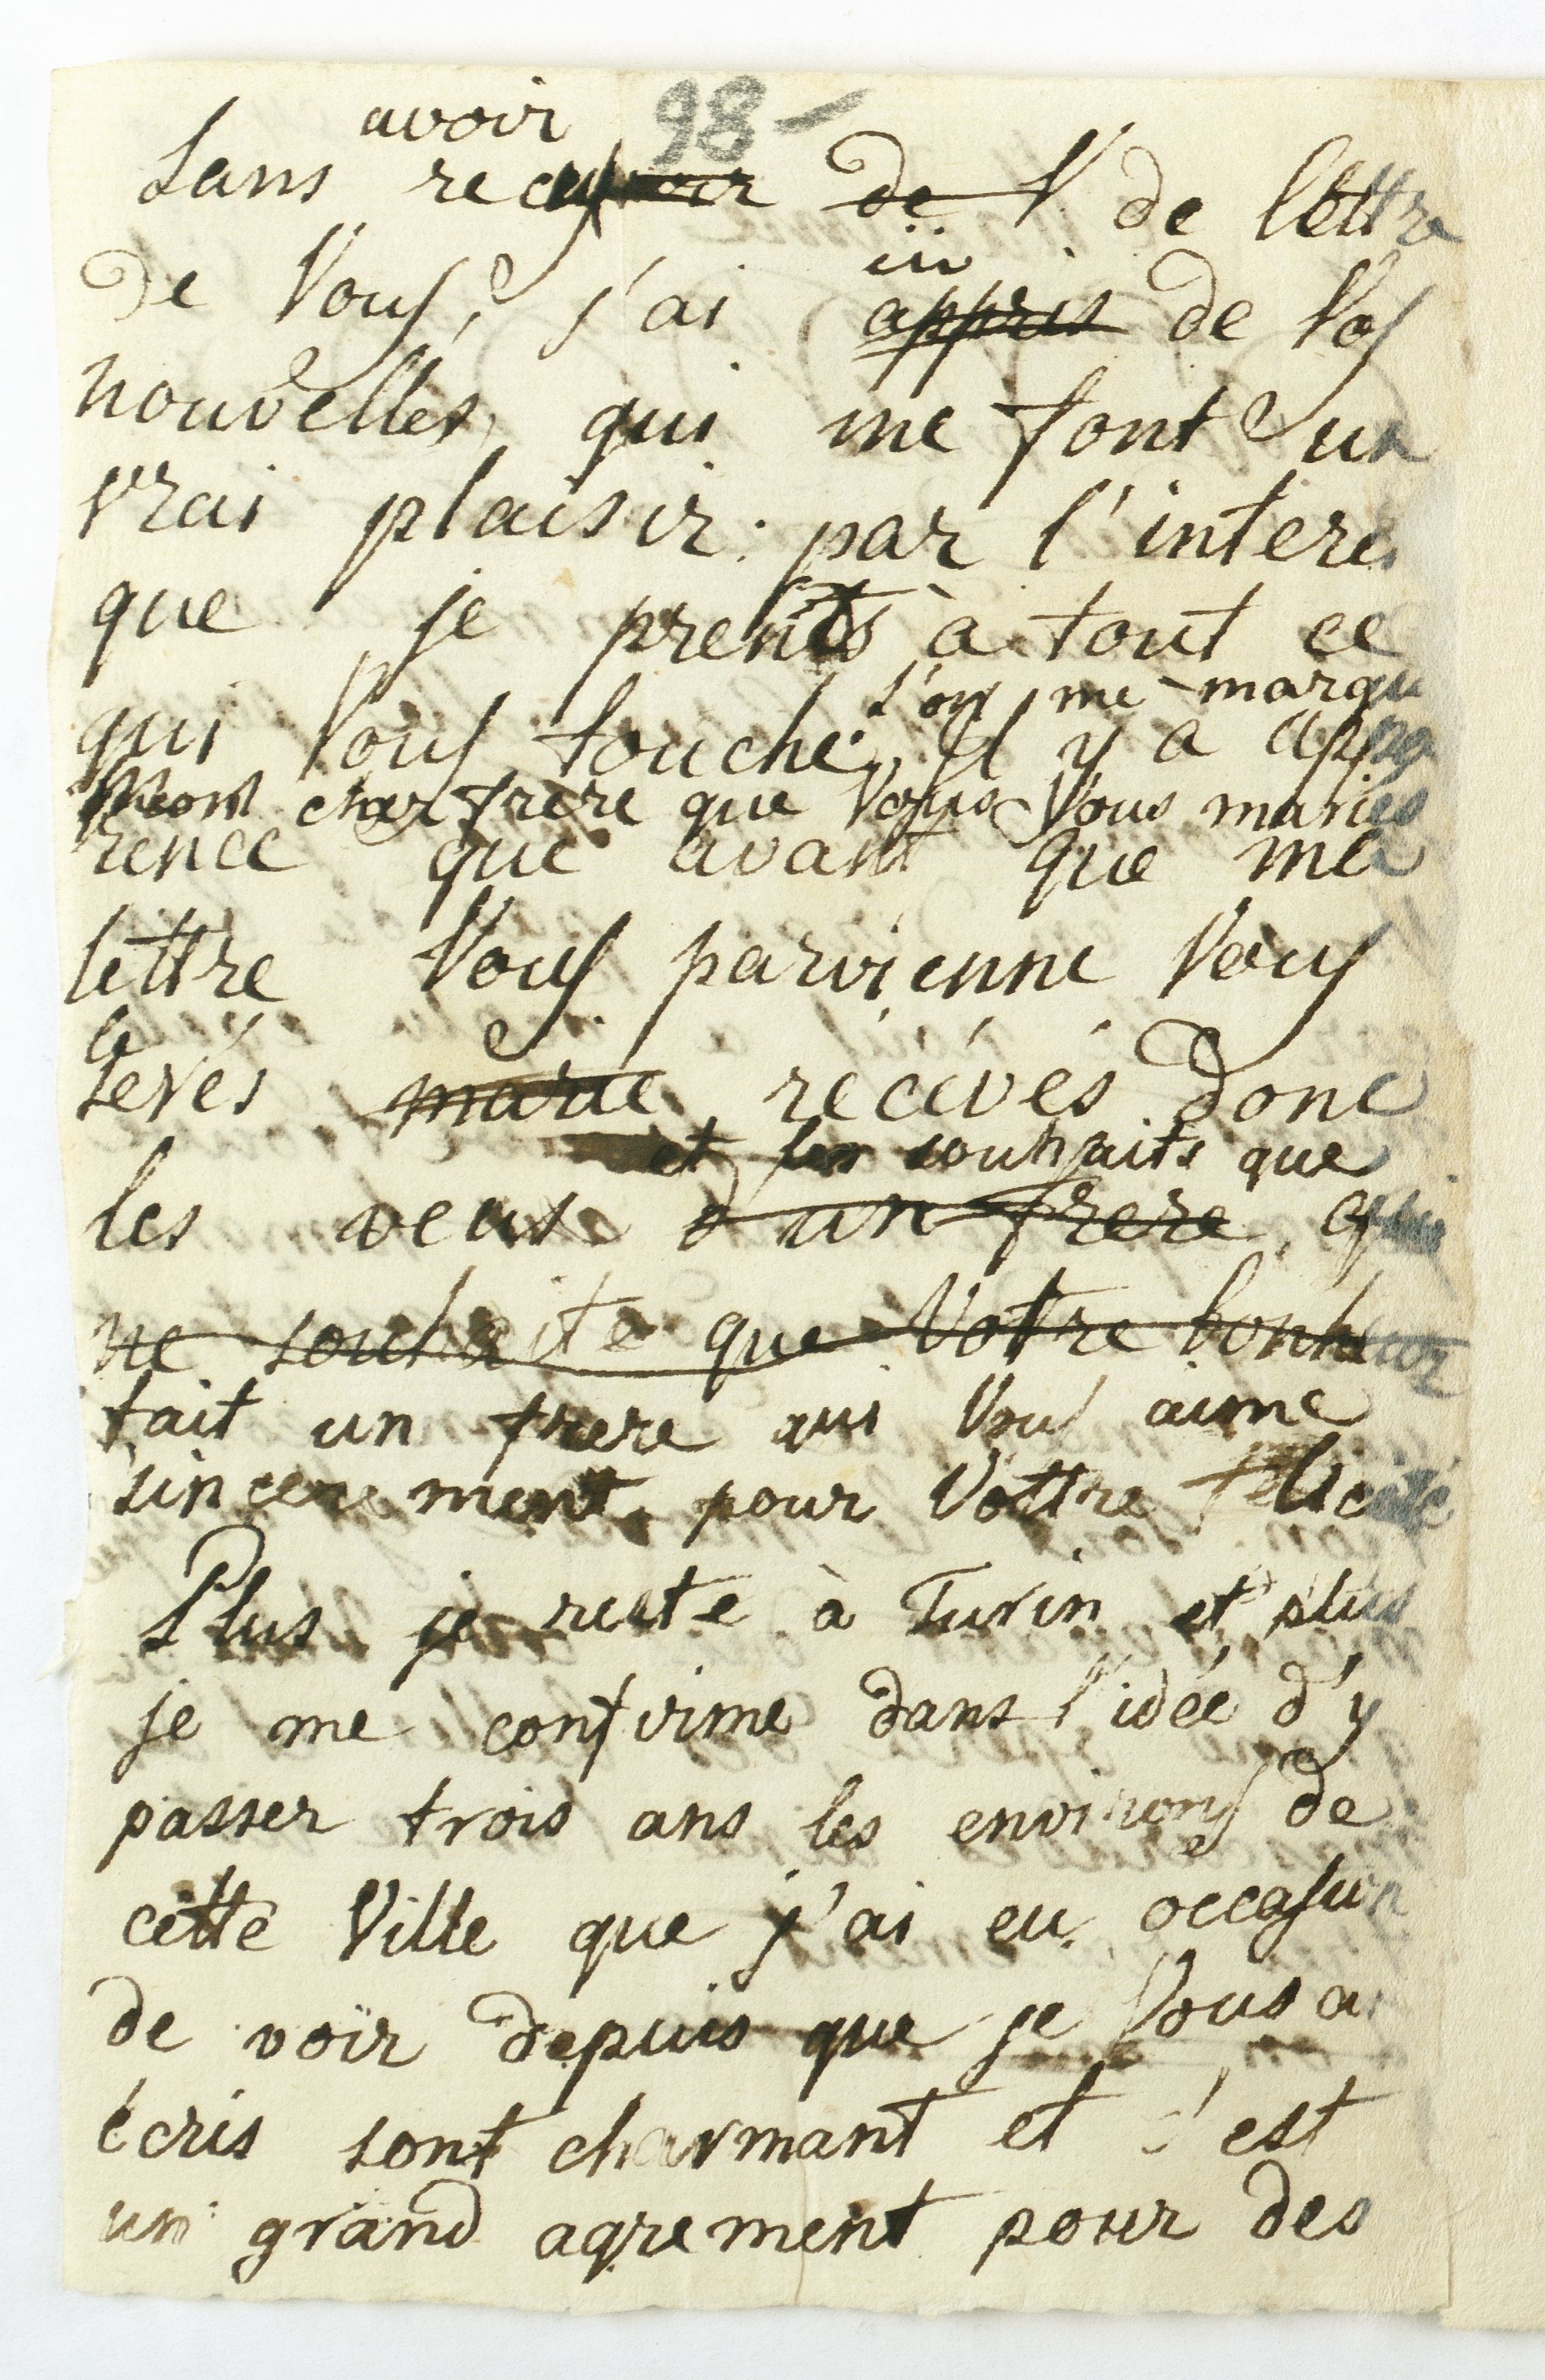 98-
avoir
Sans recu de V de lettre
de Vous, j'ai appris de Vos
nouvelles qui me font un
vrai plaisir: par l'intere
que je prents à tout ce
l'on me marqu
qui Vous touche. Il y a appa
Mont cher frere que Vous Vous maries
rence que avant que ma
lettre Vous parvienne Vous
serés marié, récévés donc
et les souhaits que
les veus d'un frere, qui
ne souhaite que Votre bonheur
fait un frere qui Vous aime
sincerement pour Vottre félicité
Plus je reste à Turin et plus
je me confirme dans l'idée d'y
passer trois ans les environs de
cette Ville que j'ai eu occasion
de voir depuis que je Vous a
écris sont charmant et c'est
un grand agrement pour des